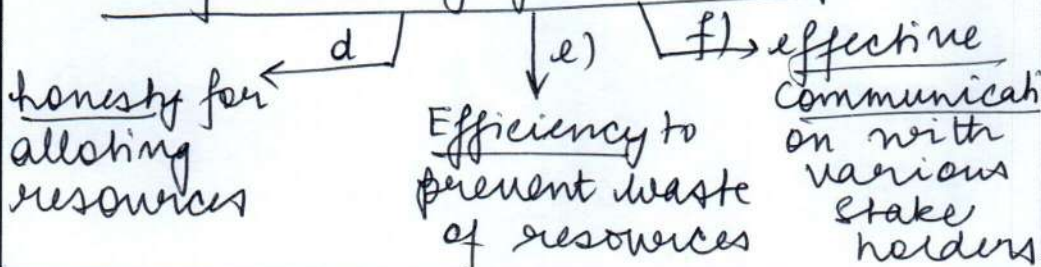 d
honesty for
alloting
resources
e)
Efficiency to
prevent waste
of resources
f)
effective
communicati
on with
various
stake
holders